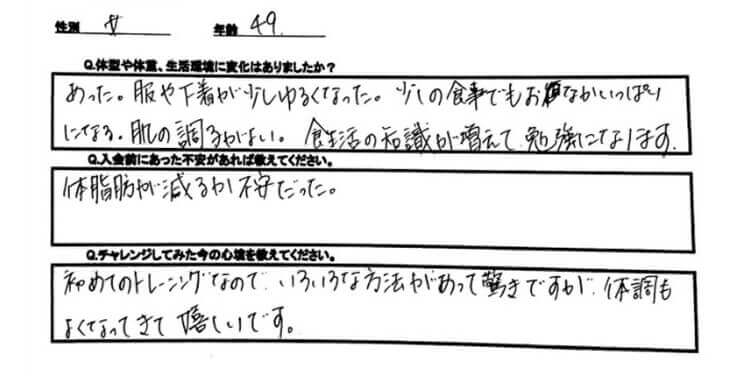 性別 女 年齢 49.
Q.体型や体重、生活環境に変化はありましたか？
あった。服や下着が少しゆるくなった。少しの食事でもおなかいっぱい
になる。肌の調子がよい。食生活の知識が増えて勉強になります。
Q.入会前にあった不安があれば教えてください。
体脂肪が減るか不安だった。
Q.チャレンジしてみた今の心境を教えてください。
初めてのトレーニングなので、いろいろな方法があって驚きですが、体調も
よくなってきて嬉しいです。